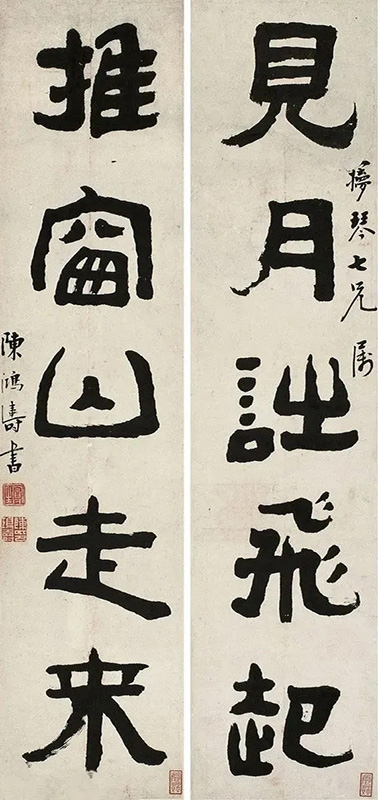 見月詩飛起
琴七兄屬
推窗山走来
陳鴻壽書